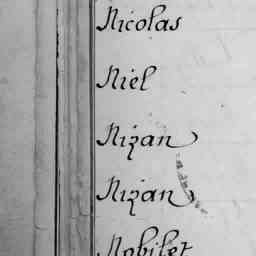 Nicolas
Niel
Nizan
Nizan
Nobilet